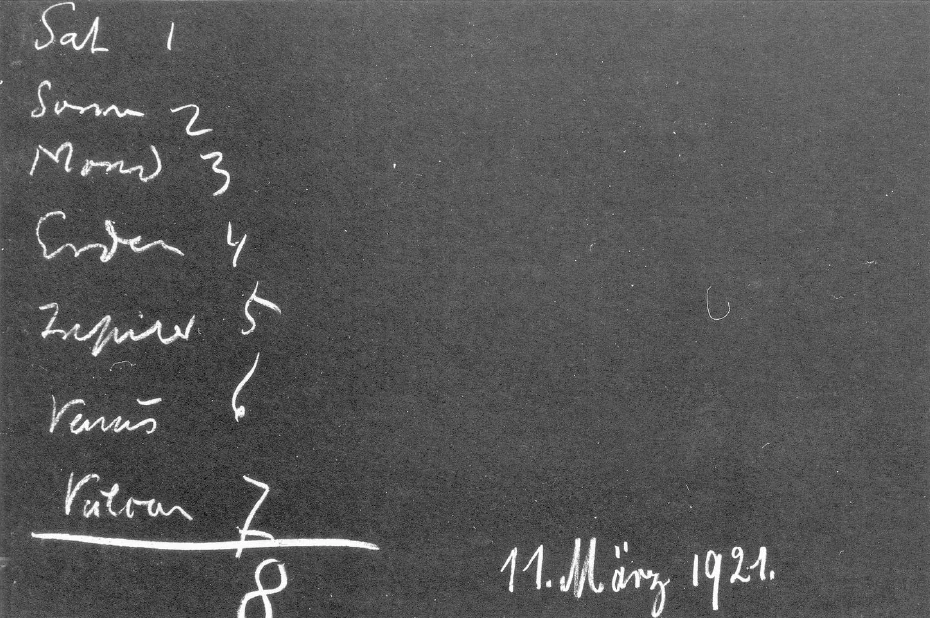 Sat 1
Sonne 2
Mond 3
Erden 4
Jupiter 5
Venus 6
Vulcan 7
8
11. März 1921.